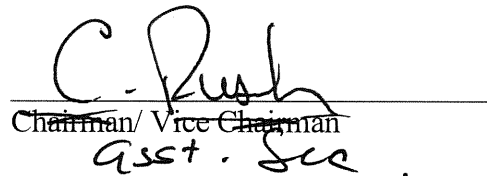 C. Rush
Chairman/ Vice Chairman
Asst. Sec